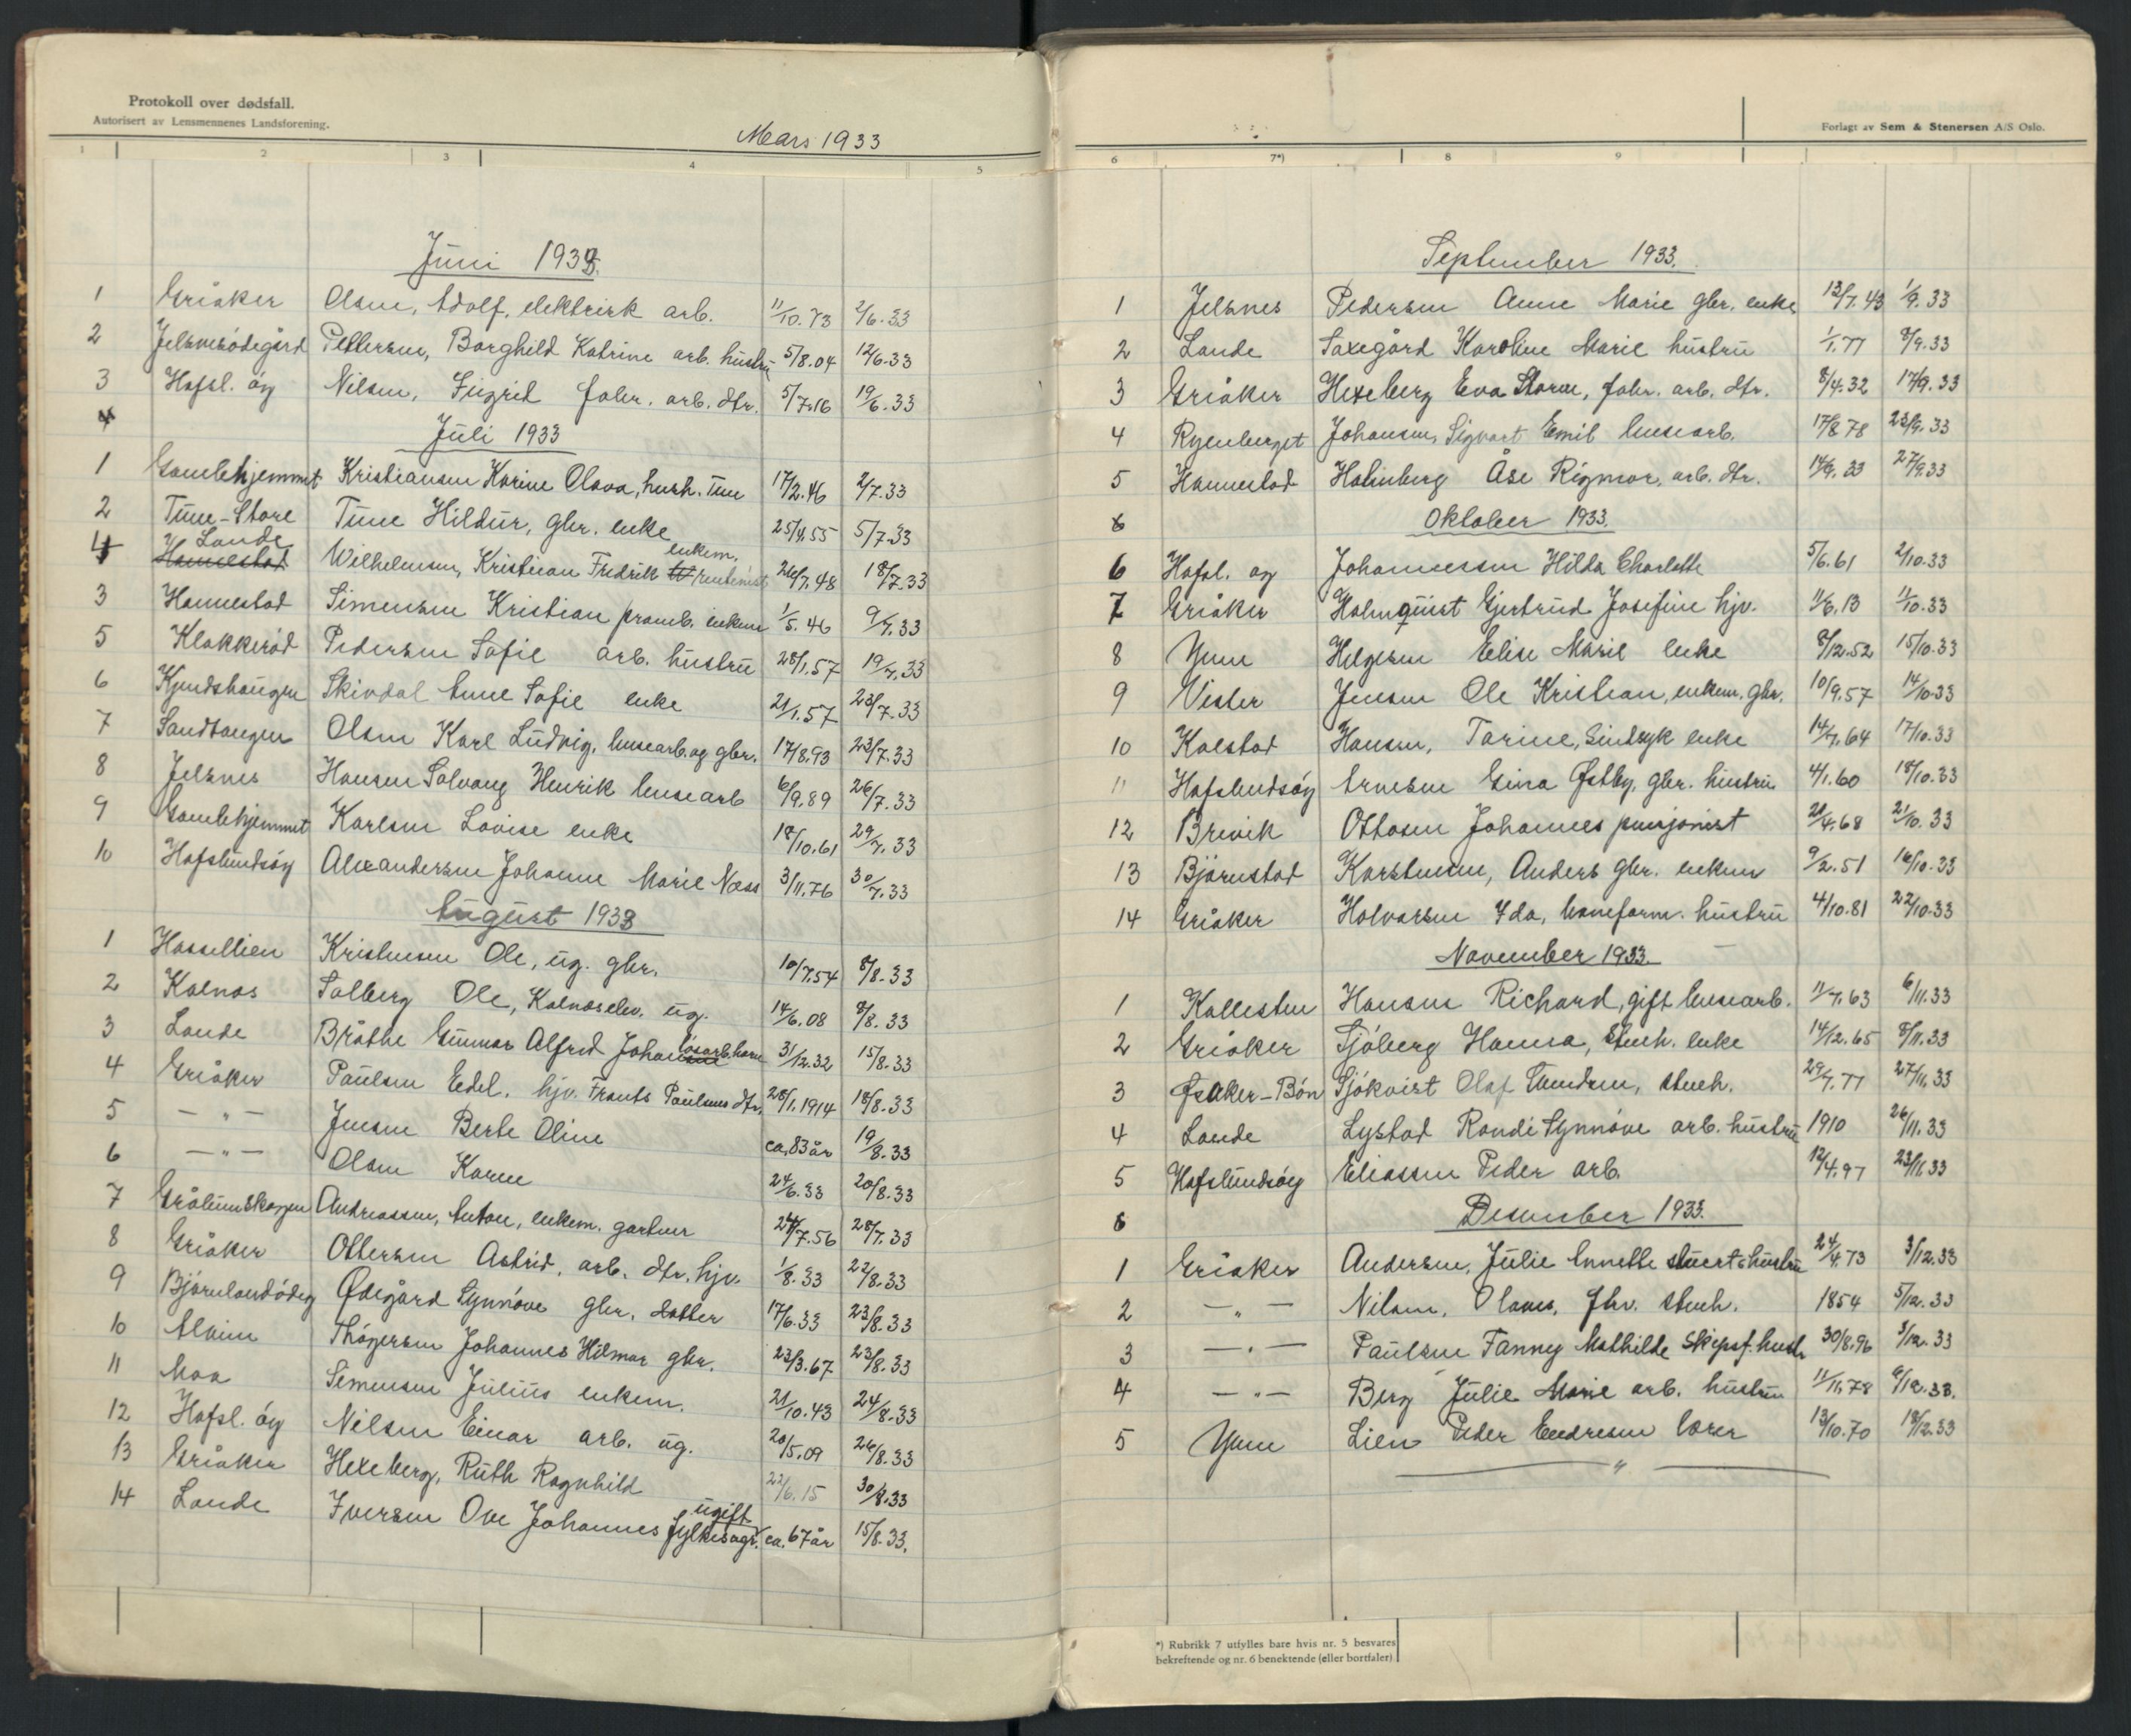 Protokoll over dødsfall.
Autorisert av Lensmennenes Landsforening.
Mars 1933
1 2 3 4 5
Juni 1933.
1 Gråker Olsen, Adolf, elektrisk arb. 11/10.73 2/6.33
2 Jelsnesödegård Pettersen, Borghild Katrine arb. hustru 5/8.04 12/6.33
3 Hafsl. öy Nilsen, Sigrid fabr. arb. dtr. 5/7.16 19/6.33
4
Juli 1933
1 Gamlehjemmet Kristiansen Karine Olava, hush. Tune 17/2.46 2/7.33
2 Tune-Store Tune Hildur, gbr. enke 25/4.55 5/7.33
4 Lande Hannestad Wilhelmsen, Kristian Fredrik enkem. rentenist 26/7.48 18/7.33
3 Hannestad Simensen Kristian pramb. enkem 1/5.46 9/7.33
5 Klokkeröd Pedersen Sofie arb. hustru 28/1.57 19/7.33
6 Kjendshaugen Skivdal Anne Sofie enke 21/1.57 23/7.33
7 Sandtangen Olsen Karl Ludvig, bruksarb. og gbr. 17/8.93 23/7.33
8 Jelsnes Hansen Solvang Henrik brusearb 6/9.89 26/7.33
9 Gamlehjemmet Karlsen Lovise enke 18/10.61 29/7.33
10 Hafslundsöy Alexandersen Johanne Marie Næss 3/11.76 30/7.33
August 1933
1 Hassellien Kristensen Ole, ug. gbr. 10/7.54 8/8.33
2 Kalnes Solberg Ole, Kalneselev, ug. 14/6.08 8/8.33
3 Lande Bråthe Gunnar Alfred Johan lösarb. barn 3/12.32 15/8.33
4 Gråker Paulsen Edel, hjv. Frants Paulsens dtr. 28/1.1914 18/8.33
5 – „ – Jensen Berte Oline ca. 83 år 19/8.33
6 – „ – Olsen Karen 24/6.33 20/8.33
7 Grålumskogen Andreassen, Anton, enkem. gartner 24/7.56 28/7.33
8 Gråker Ottersen Astrid, arb. dtr. hjv. 1/8.33 22/8.33
9 Björnlandödeg Ødegård Synnöve gbr. datter 17/6.33 23/8.33
10 Alvim Thögersen Johannes Hilmar gbr. 23/3.67 23/8.33
11 Moa Simensen Julius enkem. 21/10.43 24/8.33
12 Hafsl. öy Nilsen Einar arb. ug. 20/5.09 26/8.33
13 Gråker Hexeberg, Ruth Ragnhild 23/6.15 30/8.33
14 Lande Iversen Ove Johannes ugift fylkesagr. ca. 67 år 15/8.33.
Forlagt av Sem & Stenersen A/S Oslo.
6 7*) 8 9
September 1933.
1 Jelsnes Pedersen Anne Marie gbr. enke 13/7.43 1/9.33
2 Lande Saxegård Karoline Marie hustru 1/1.77 8/9.33
3 Gråker Hexeberg Eva Storm, fabr. arb. dtr. 8/4.32 17/9.33
4 Ryenberget Johansen, Sigvart Emil brusearb. 17/8.78 23/9.33
5 Hannestad Holmberg Åse Rigmor, arb. dtr. 14/9.33 27/9.33
6
Oktober 1933.
6 Hafsl. øy Johannessen Hilda Charlotte 5/6.61 2/10.33
7 Gråker Holmquist Gjertrud Josefine hjv. 11/6.13 11/10.33
8 Yven Helgesen Elise Marie enke 8/12.52 15/10.33
9 Vister Jensen Ole Kristian, enkem. gbr. 10/9.57 14/10.33
10 Kolstad Hansen, Torine, Sindsyk enke 14/7.64 17/10.33
11 Hafslundsöy Arnesen Gina Østby, gbr. hustru 4/1.60 18/10.33
12 Brevik Ottosen Johannes pensjonist 21/4.68 21/10.33
13 Björnstad Karstensen, Anders gbr. enkem 9/2.51 16/10.33
14 Gråker Halvorsen Ida, baneform. hustru 4/10.81 22/10.33
November 1933.
1 Kallesten Hansen Richard, gift brusearb. 11/7.63 6/11.33
2 Gråker Sjöberg Hanna, stueh. enke 14/12.65 8/11.33
3 Øsaker-Bön Sjökvist Olaf stueh. 29/7.77 27/11.33
4 Lande Lystad Randi Synnöve arb. hustru 1910 26/11.33
5 Hafslundsöy Eliassen Peder arb. 12/4.97 23/11.33
6
Desember 1933.
1 Gråker Andersen, Julie Annette stuert hustru 24/4.73 3/12.33
2 – „ – Nilsen, Olaves, fhv. stueh. 1854 5/12.33
3 – „ – Paulsen Fanny Mathilde skipsf. hustr 30/8.96 3/12.33
4 – „ – Berg Julie Marie arb. hustru 11/11.78 6/12.33.
5 Yven Lien Peder Endresen lærer 13/10.70 18/12.33
*) Rubrikk 7 utfylles bare hvis nr. 5 besvares
bekreftende og nr. 6 benektende (eller bortfaler)